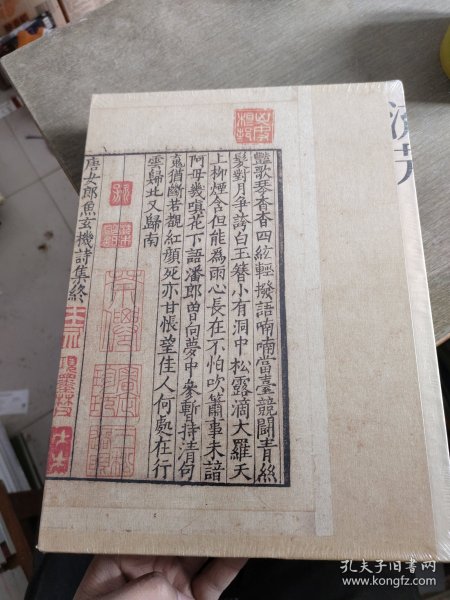 豔歌琴杳杳四絃輕撥語喃喃當臺競鬪青絲
髮對月爭誇白玉簪小有洞中松露滴大羅天
上柳煙含但能為雨心長在不怕吹簫事未諳
阿母幾嗔花下語潘郎曾向夢中參暫持清句
魂猶斷若覩紅顏死亦甘悵望佳人何處在行
雲歸北又歸南
唐女郎魚玄機詩集終
孔夫子旧书网
www.kongfz.com